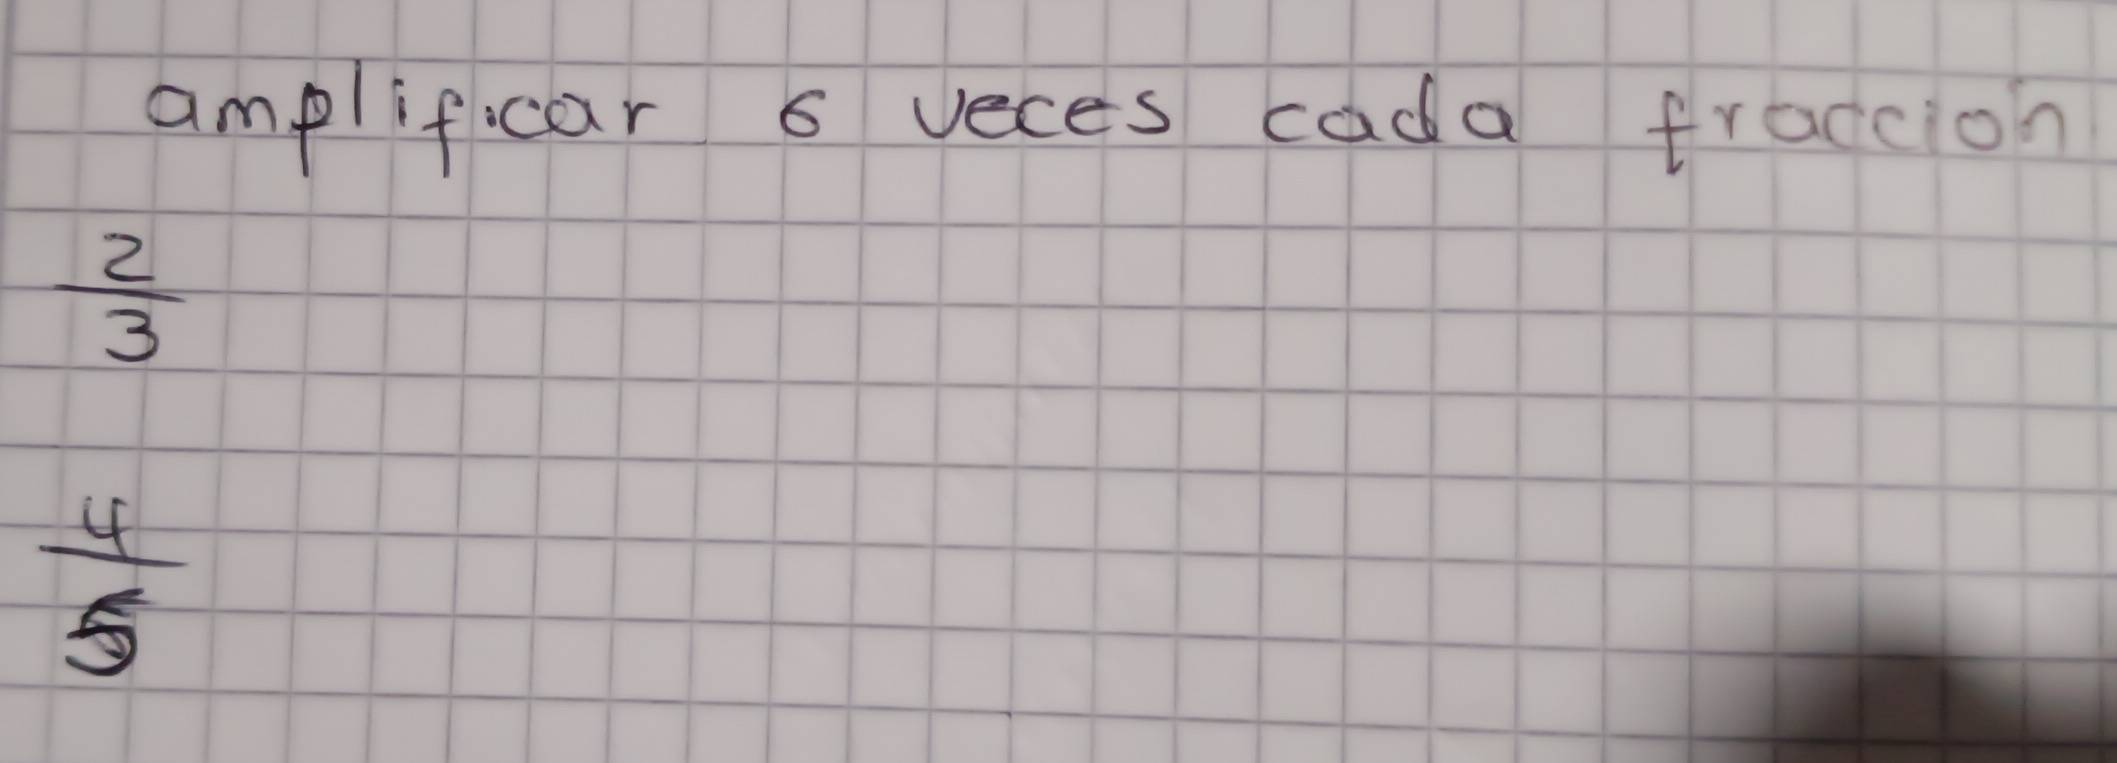 amplificar 6 veces cada fraccion
2
3
4
5